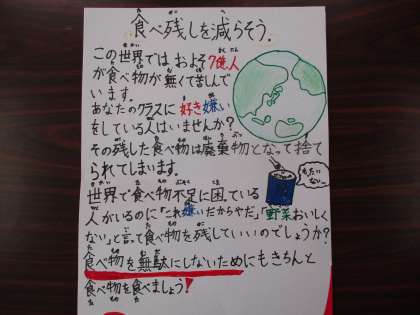 食べ残しを減らそう.
この世界ではおよそ7億人
が食べ物が無くて苦しんで
います.
あなたのクラスに好き嫌い
をしている人はいませんか?
その残した食べ物は廃棄物となって捨て
られてしまいます.
もったいない
世界で食べ物不足に困っている
人がいるのに「これ嫌いだからやだ」「野菜おいしく
ない」と言って食べ物を残していいのでしょうか?
食べ物を無駄にしないためにもきちんと
食べ物を食べましょう!